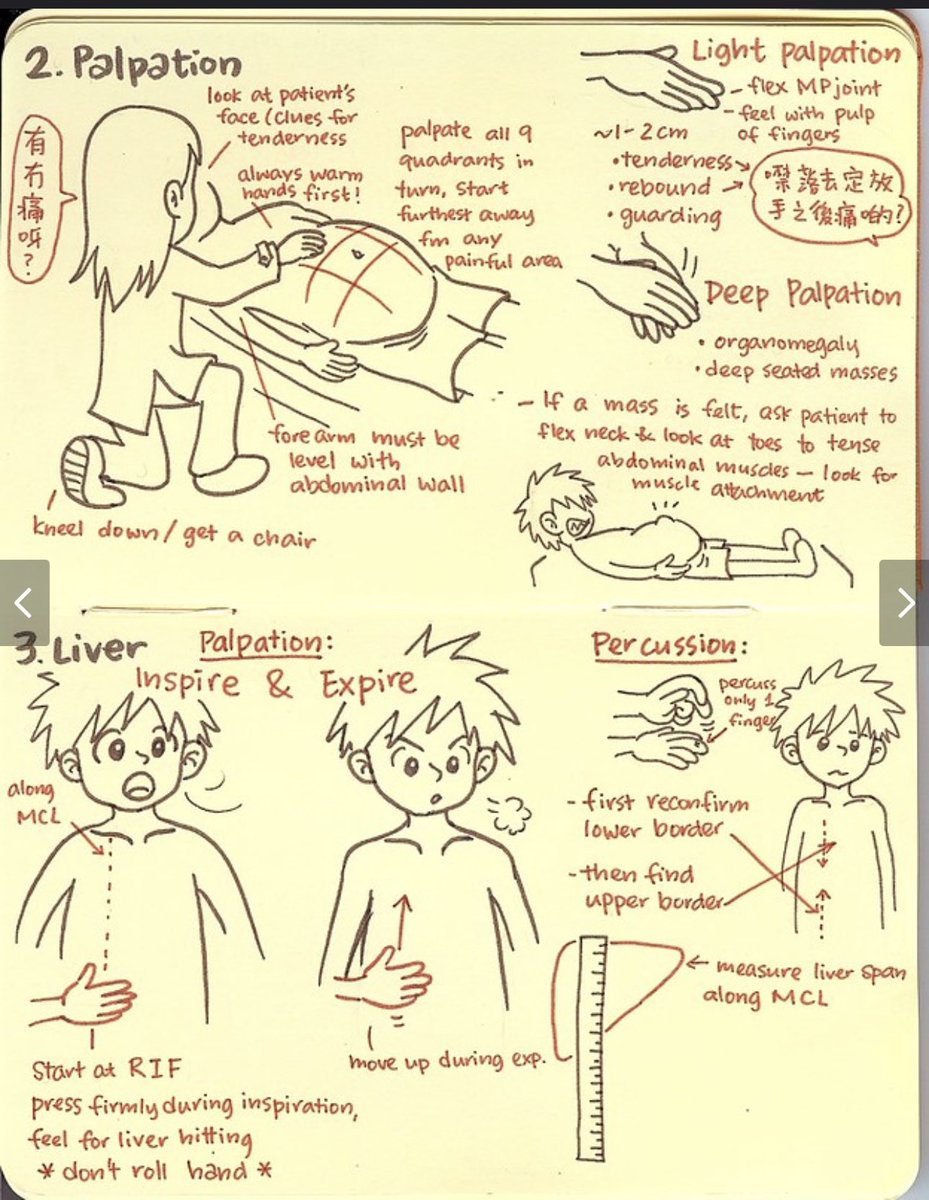 2. Palpation
look at patient's
face (clues for
tenderness
always warm
hands first!
有
冇
痛
呀
?
palpate all 9
quadrants in
turn, start
furthest away
fm any
painful area
forearm must be
level with
abdominal wall
kneel down / get a chair
Light palpation
- flex MP joint
- feel with pulp
of fingers
~1-2cm
• tenderness
• rebound
• guarding
㩒落去定放
手之後痛啲?
Deep Palpation
• organomegaly
• deep seated masses
- If a mass is felt, ask patient to
flex neck & look at toes to tense
abdominal muscles — look for
muscle attachment
3. Liver
Palpation:
Inspire & Expire
along
MCL
Start at RIF
press firmly during inspiration,
feel for liver hitting
* don't roll hand *
move up during exp.
Percussion:
percuss
only 1
finger
- first reconfirm
lower border
- then find
upper border
measure liver span
along MCL